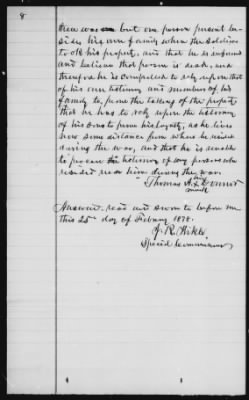 8
there was but one person present be-
sides his own family when the soldiers
took his property, and that he is informed
and believe that person is dead, and
therefore he is compelled to rely upon that
of his own testimony and members of his
family to prove the taking of the property
that he has to rely upon the testimony
of his sons to prove his loyalty, as he lives
now some distance from where he resided
during the war, and that he is unable
to procure the testimony of any person who
resided near him during the war.
Thomas A. his X mark
Answered, read and sworn to before me
this 25th day of February 1878.
J. R.
Special Commissioner